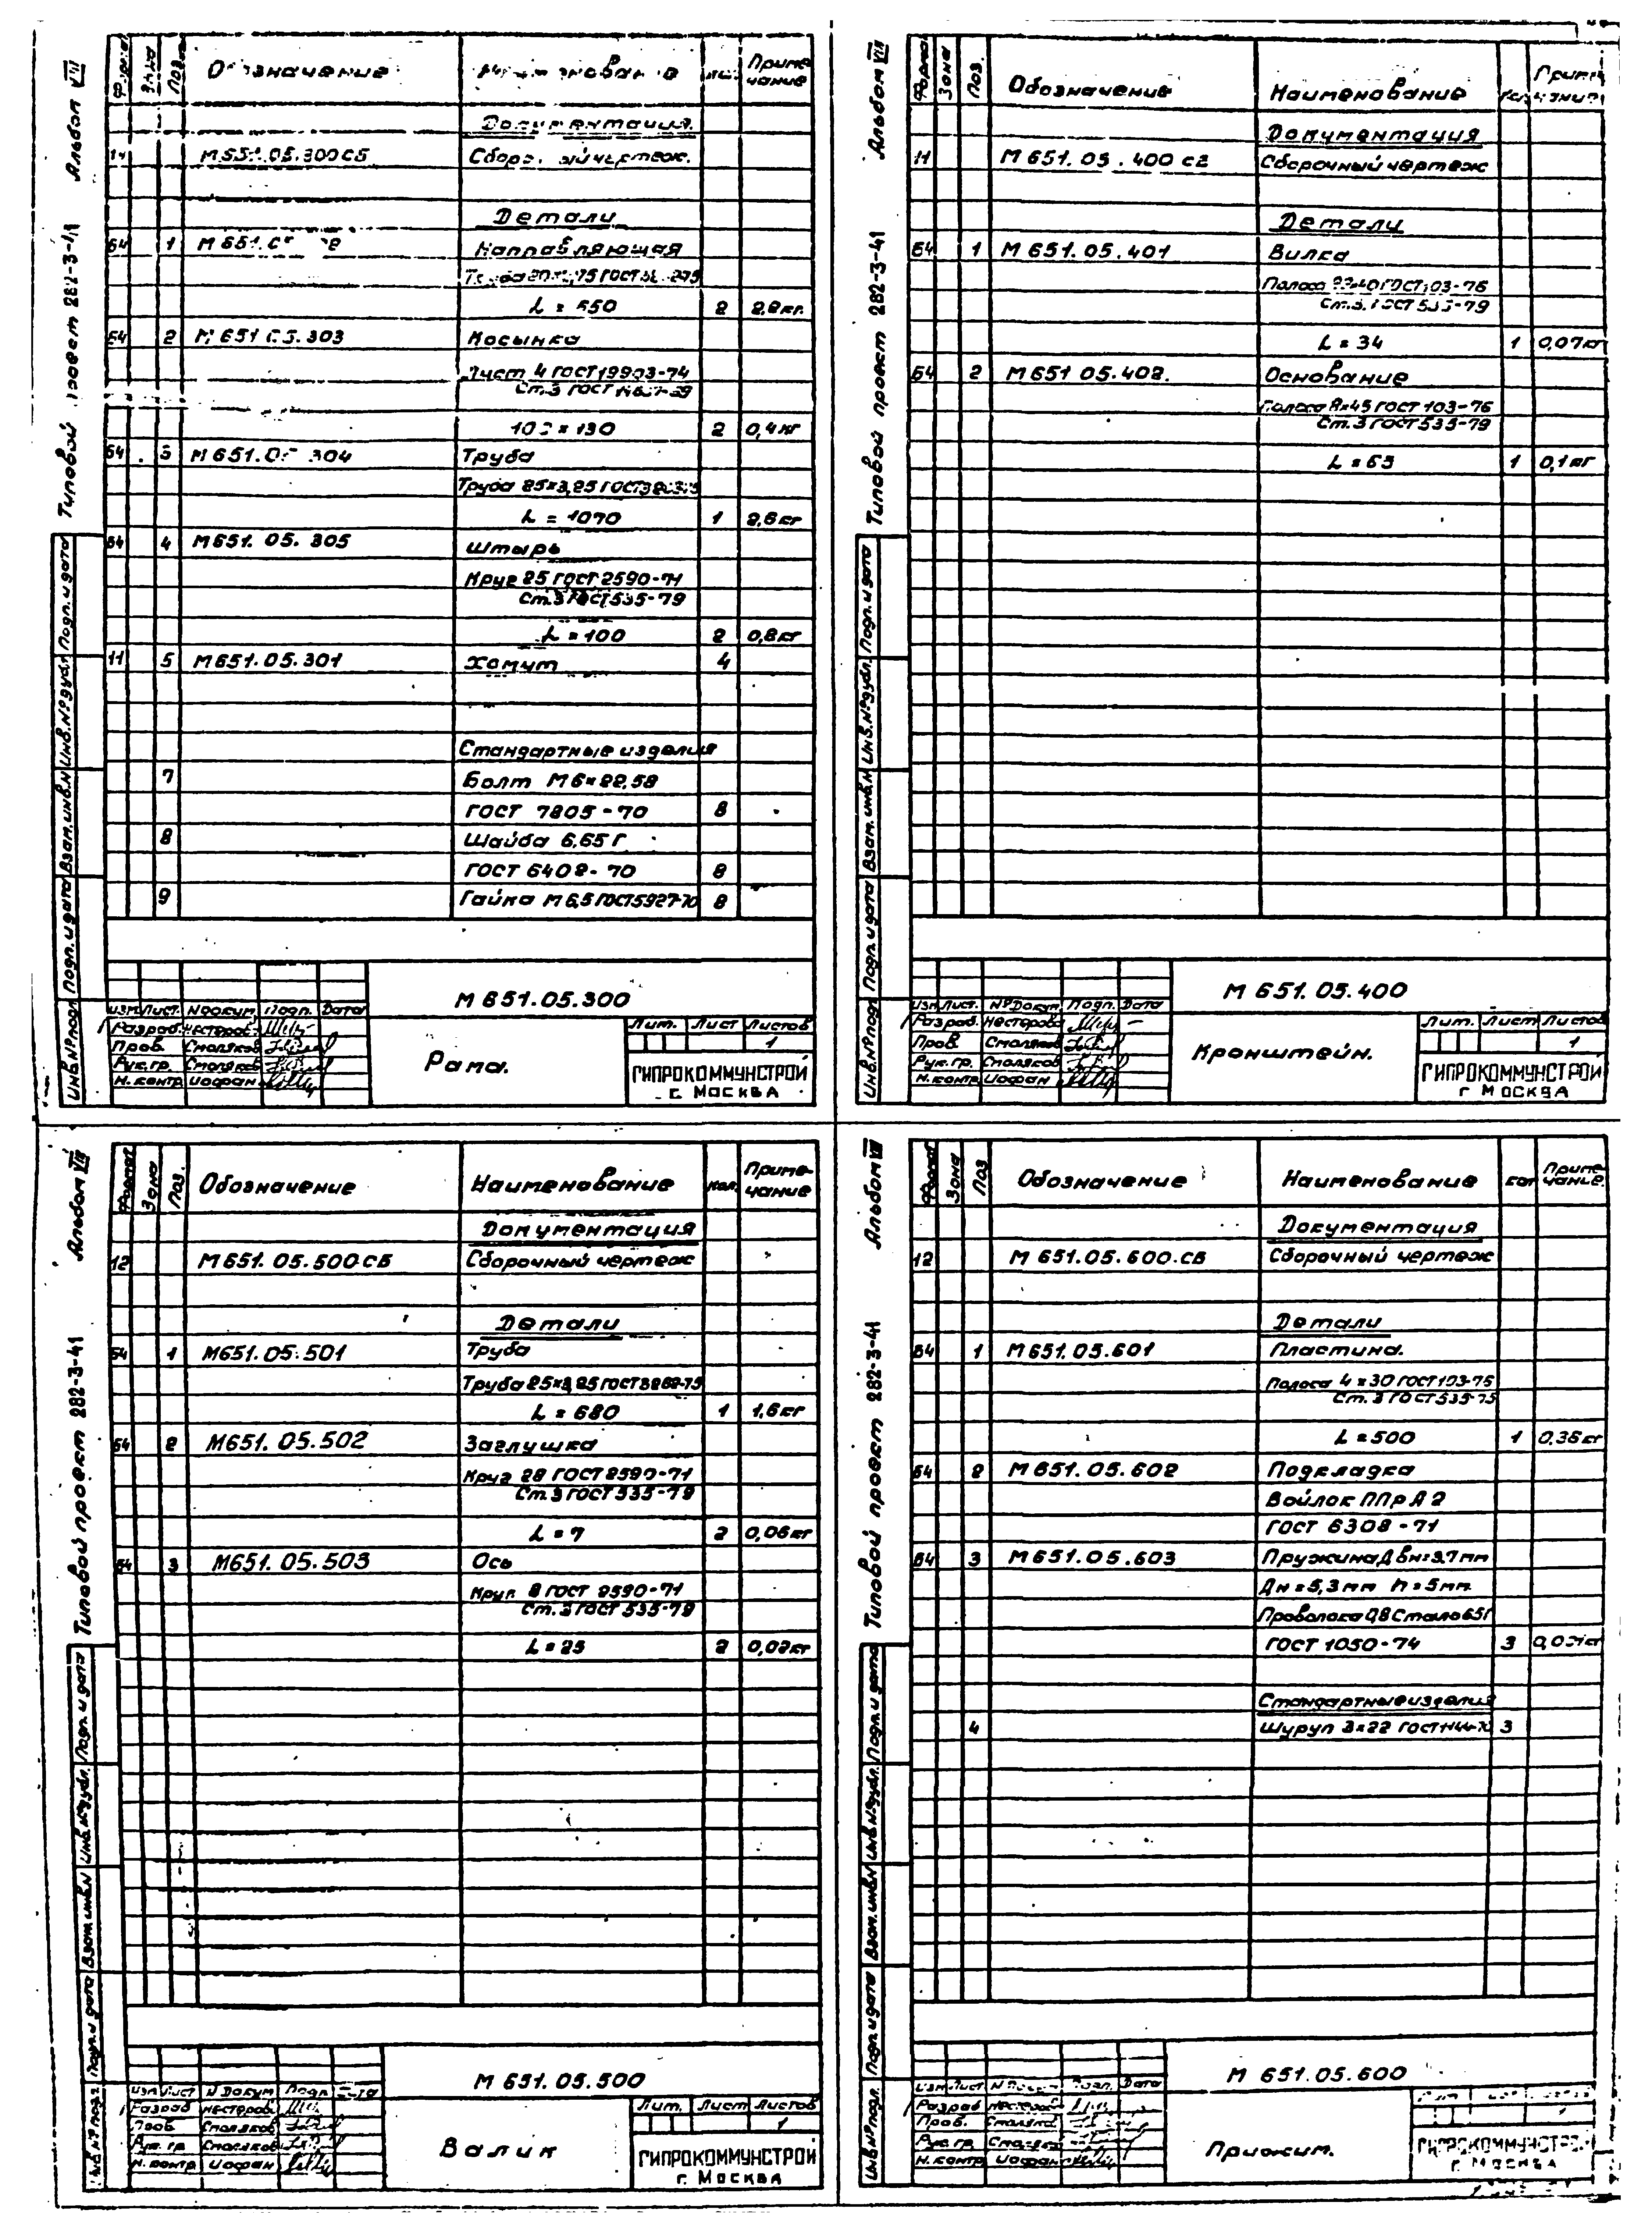 Альбом VIII
Типовой проект 282-3-41
Формат Зона Поз. Обозначение Примечание
Документация
11 М651.05.300СБ чертеж.
Детали
Б4 1 Направляющая
L = 550 2 2,2кг.
Б4 2 М651.05.303 Косынка
Лист 4 ГОСТ 19903-74
Ст.3 ГОСТ
× 130 2 0,4 кг
Б4 3 М651.05.304 Труба
Труба 25×3,25 ГОСТ
L = 1070 1 2,6кг
Б4 4 М651.05.305 Штырь
Круг 25 ГОСТ 2590-71
Ст.3 ГОСТ 535-79
L = 100 2 0,8кг
11 5 М651.05.301 Хомут 4
Стандартные изделия
7 Болт М6×22.58
ГОСТ 7805-70 8
8 Шайба 6.65Г
ГОСТ 6402-70 8
9 Гайка М6.5 ГОСТ 5927-70 8
Инв.№подл Подп.и дата Взам.инв.№ Инв.№дубл. Подп.и дата
М651.05.300
Изм Лист. №докум. Подп. Дата
Разраб. Нестерова
Пров. Смоляков
Рук.гр. Смоляков
Н.контр. Иофан
Рама.
Лит. Лист Листов
1
ГИПРОКОММУНСТРОЙ
г. МОСКВА
Альбом VIII
Типовой проект 282-3-41
Формат Зона Поз. Обозначение Наименование
Документация
11 М651.05.400 Сборочный чертеж
Детали
Б4 1 М651.05.401 Вилка
Полоса ГОСТ 103-76
Ст.3. ГОСТ 535-79
L = 34 1 0,07кг
Б4 2 М651.05.402. Основание
Полоса 8×45 ГОСТ 103-76
Ст.3 ГОСТ 535-79
L = 65 1 0,1 кг
Инв.№подл Подп.и дата Взам.инв.№ Инв.№дубл. Подп.и дата
М 651.05.400
Изм Лист. №Докум. Подп. Дата
Разраб. Нестерова
Пров Смоляков
Рук.гр. Смоляков
Н.контр Иофан
Кронштейн.
Лит. Лист Листов
1
ГИПРОКОММУНСТРОЙ
г МОСКВА
Альбом VIII
Типовой проект 282-3-41
Формат Зона Поз. Обозначение Наименование кол. Примечание
Документация
12 М651.05.500.СБ Сборочный чертеж
Детали
Б4 1 М651.05.501 Труба
Труба 25×3,25 ГОСТ 3262-75
L = 680 1 1,6кг
Б4 2 М651.05.502 Заглушка
Круг 28 ГОСТ 2590-71
Ст.3 ГОСТ 535-79
L = 7 2 0,06кг
Б4 3 М651.05.503 Ось
Круг 8 ГОСТ 2590-71
Ст.3 ГОСТ 535-79
L = 25 2 0,02кг
Подп.и дата Взам.инв.№ Инв.№дубл. Подп.и дата
М 651.05.500
Изм Лист №Докум. Подп
Разраб Нестерова
Пров Смоляков
Рук.гр. Смоляков
Н.контр Иофан
Валик
Лит. Лист Листов
1
ГИПРОКОММУНСТРОЙ
г. МОСКВА
Альбом VIII
Типовой проект 282-3-41
Формат Зона Поз Обозначение Наименование кол Примечание.
Документация
12 М651.05.600.СБ Сборочный чертеж
Детали
Б4 1 М651.05.601 Пластина.
Полоса 4×30 ГОСТ 103-76
Ст.3 ГОСТ 535-75
L = 500 1 0,36кг
Б4 2 М651.05.602 Подкладка
Войлок ППрА2
ГОСТ 6308-71
Б4 3 М651.05.603 Пружина Двн=3.7мм
Дн=5,3мм h=5мм.
Проволока 0,8 Сталь 65Г
ГОСТ 1050-74 3 0,001кг
Стандартные изделия
4 Шуруп 3×22 ГОСТ 1144-70 3
Инв.№подл. Подп.и дата Взам.инв.№ Инв.№дубл. Подп.и дата
М 651.05.600
Изм Лист Подп. Дата
Разраб Нестерова
Пров. Смоляков
Рук.гр. Смоляков
Н.контр Иофан
Прижим.
ГИПРОКОММУНСТРОЙ
г. МОСКВА